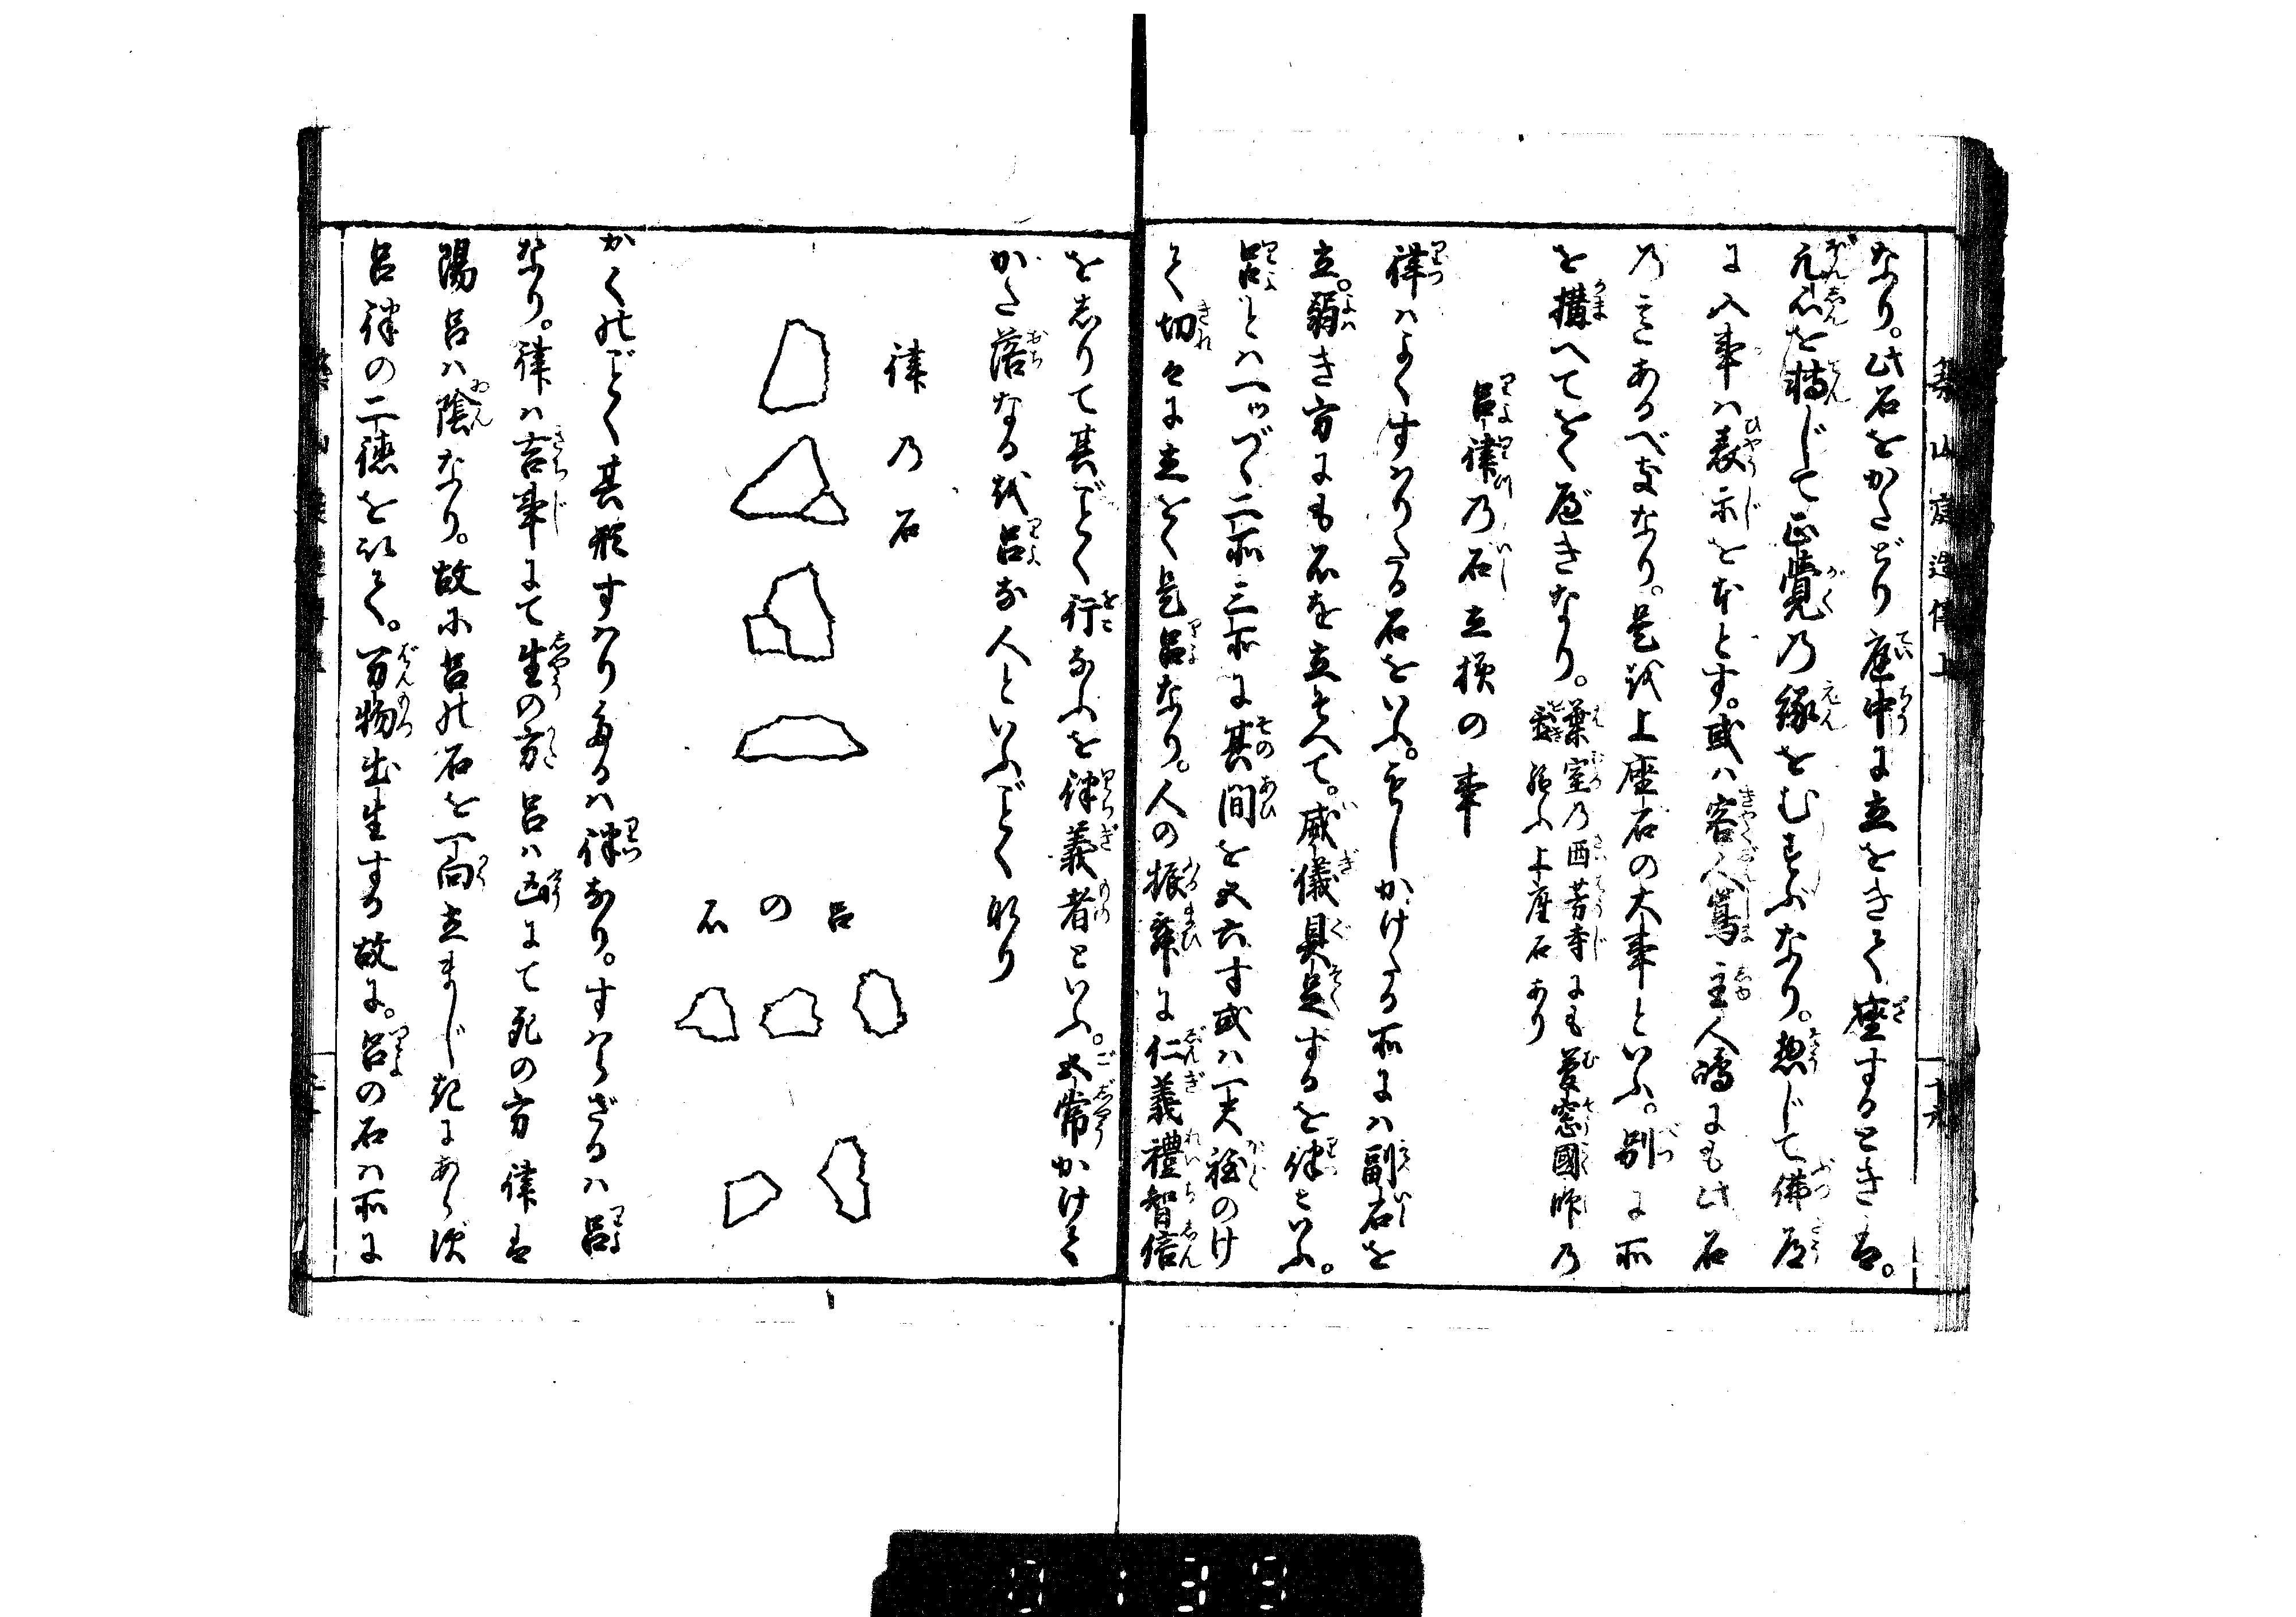 なり。此石をかたどり庭中に立をきて座するときは。
凡心を転じて正覚の縁をむすぶなり。惣じて佛道
に入事ハ表示をもとす。或ハ客人嶌主人嶋にも此石
乃こゝろあるべき事なり。是を上座石の大事といふ。別に所
を構へてをくべきなり。
葉室乃西芳寺にも夢窓國師乃
給ふ上座石あり
呂律乃石立様の事
律ハよくすハりたる石をいふ。もしかけたる所にハ副石を
立。弱き方にも石を立そへて。威儀具足するを律といふ。
呂とハ一ツづゝ二所三所に其間を五六寸或ハ一尺程のけ
て切々に立をく是呂なり。人の振舞に仁義禮智信
をしりて其ごとく行なふを律義者といふ。五常かけて
かた落なるを呂な人といふごとくなり
律乃石
呂の石
かくのごとく其形すハりたるハ律なり。すハらざるハ呂
なり。律ハ吉事にて生の方呂ハ凶にて死の方律は
陽呂ハ陰なり。故に呂の石を一向立まじきにあらず
呂律の二徳を以て。万物出生する故に。呂の石ハ所に
築山庭造傳上